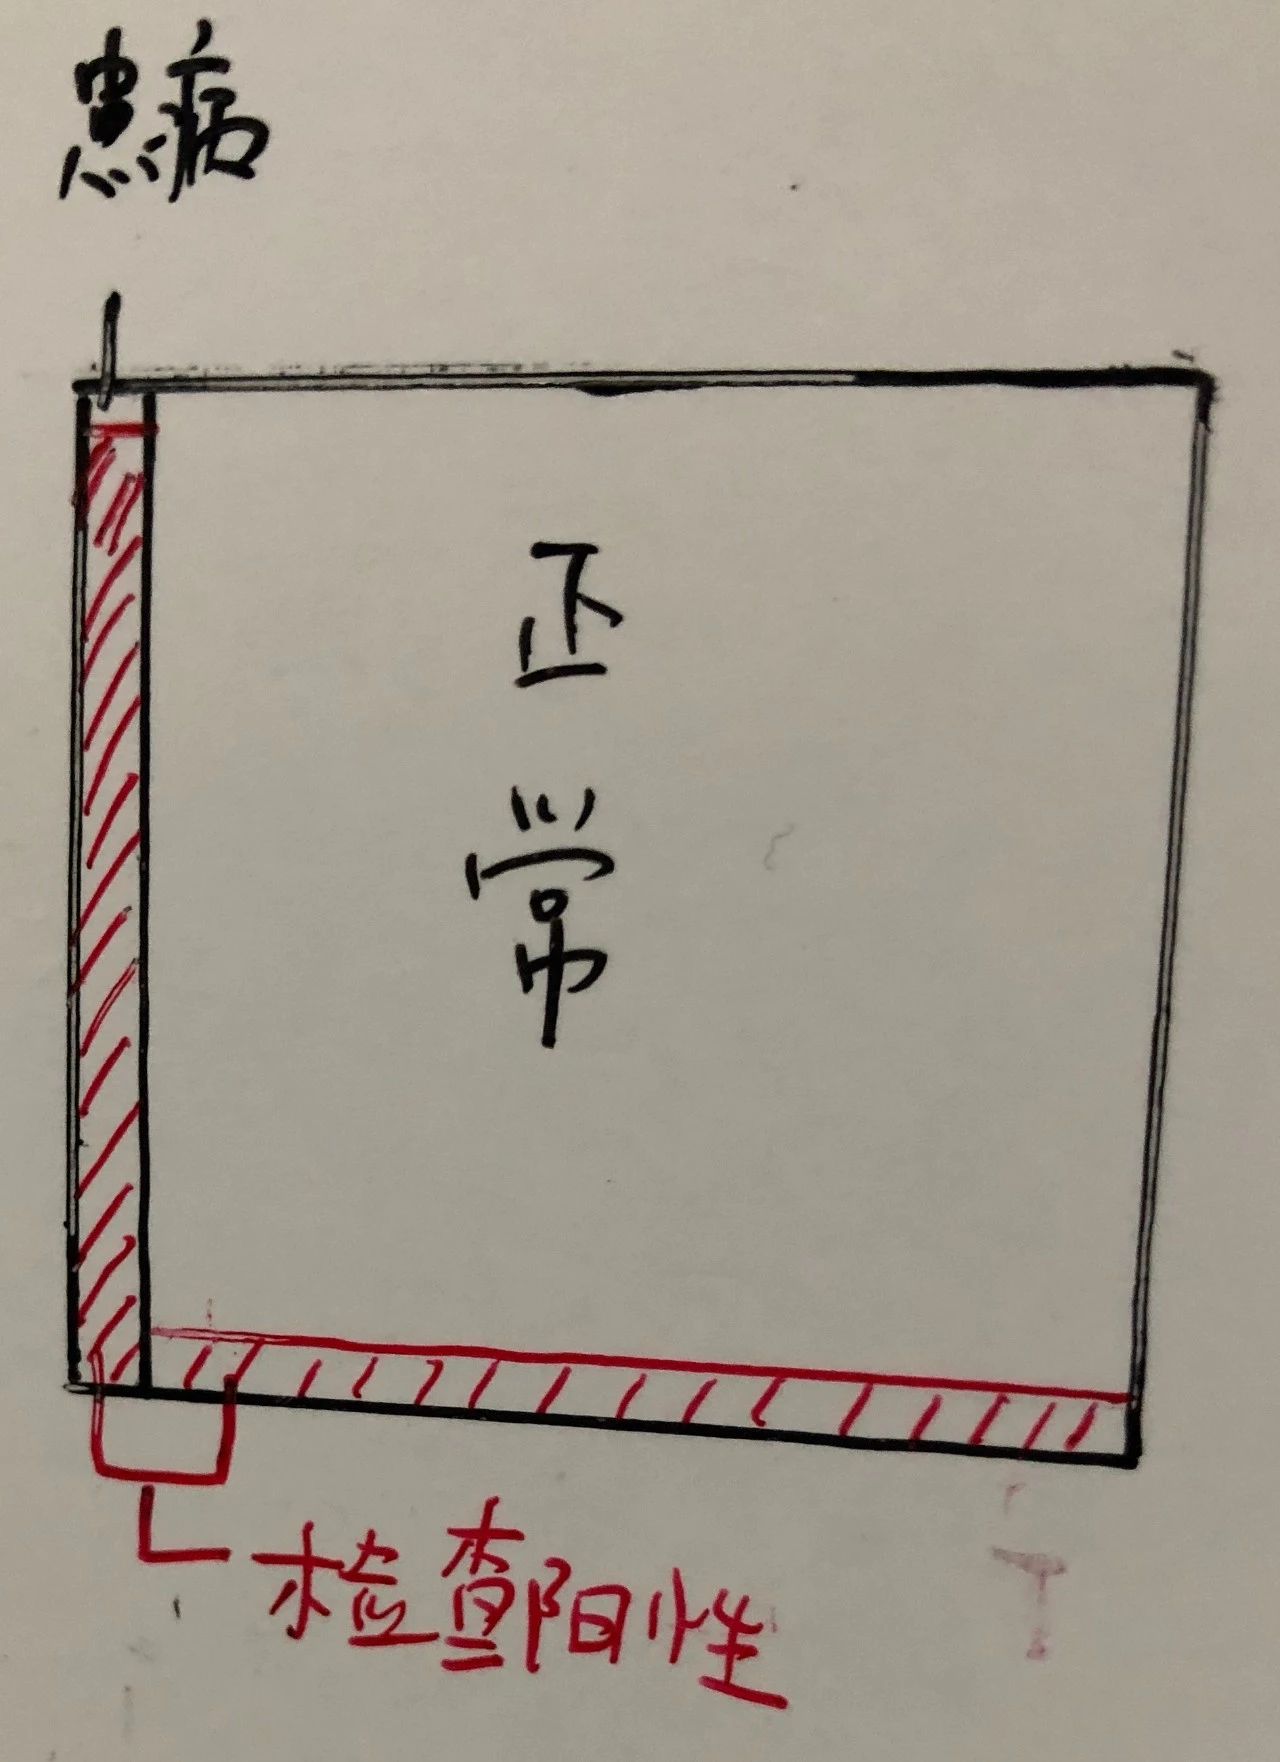 患病
正常
检查阳性